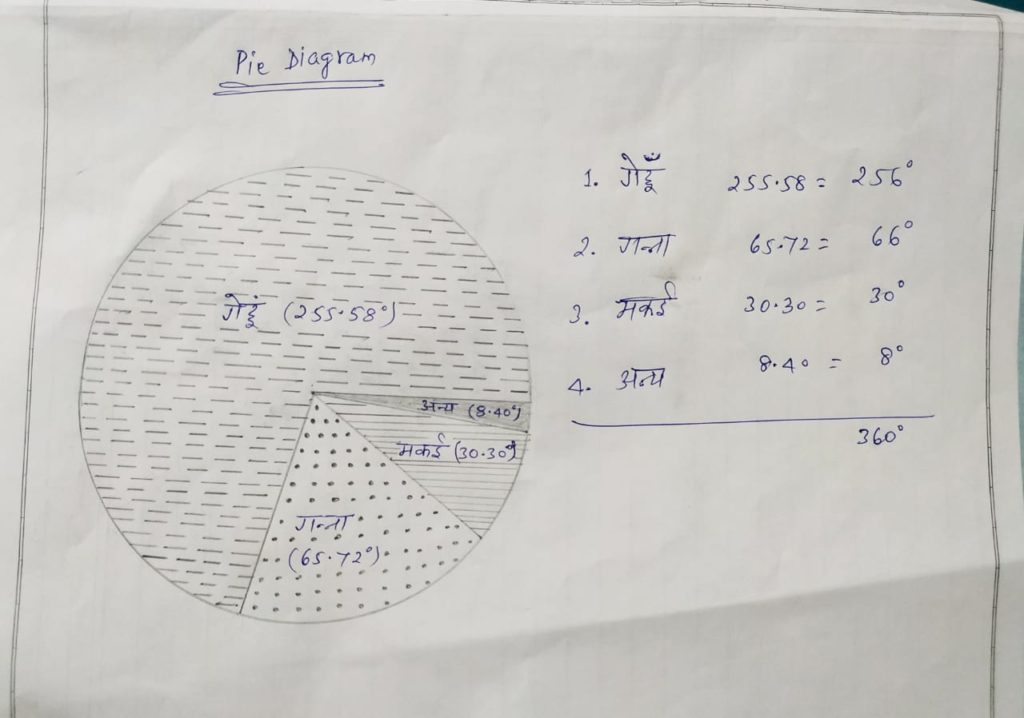 Pie Diagram
गेहूं (255.58°)
अन्य (8.40°)
मकई (30.30°)
गन्ना
(65.72°)
1. गेहूँ 255.58 = 256°
2. गन्ना 65.72 = 66°
3. मकई 30.30 = 30°
4. अन्य 8.40 = 8°
360°